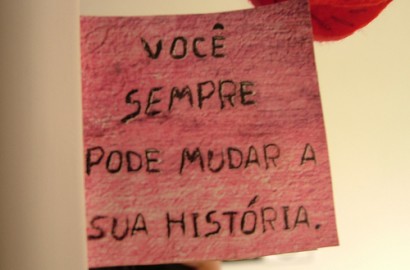 VOCÊ
SEMPRE
PODE MUDAR A
SUA HISTÓRIA.